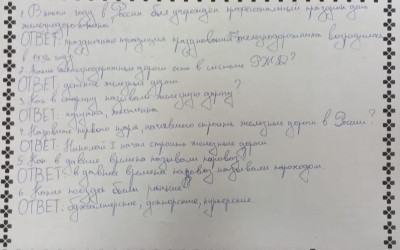 1. В каком году в России был учрежден профессиональный праздник день
железнодорожника?
ОТВЕТ: традиция празднования железнодорожника возродилась
в году
2. Какие железнодорожные дороги есть в системе РЖД?
ОТВЕТ: детские железные дороги
3. Как в старину называли железную дорогу?
ОТВЕТ: чугунка,
4. Назовите первого царя, начавшего строить железные дороги в России?
ОТВЕТ: Николай I начал строить железные дороги
5. Как в давние времена называли паровоз?
ОТВЕТ: в давние времена паровоз называли пароходом.
6. Какие поезда были раньше?
ОТВЕТ: докторские, курьерские.